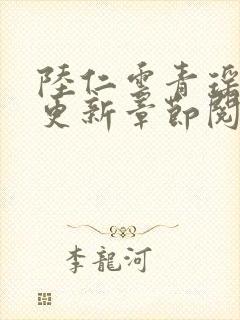 陸仁雲青瑤
更新章節閱
李龍河